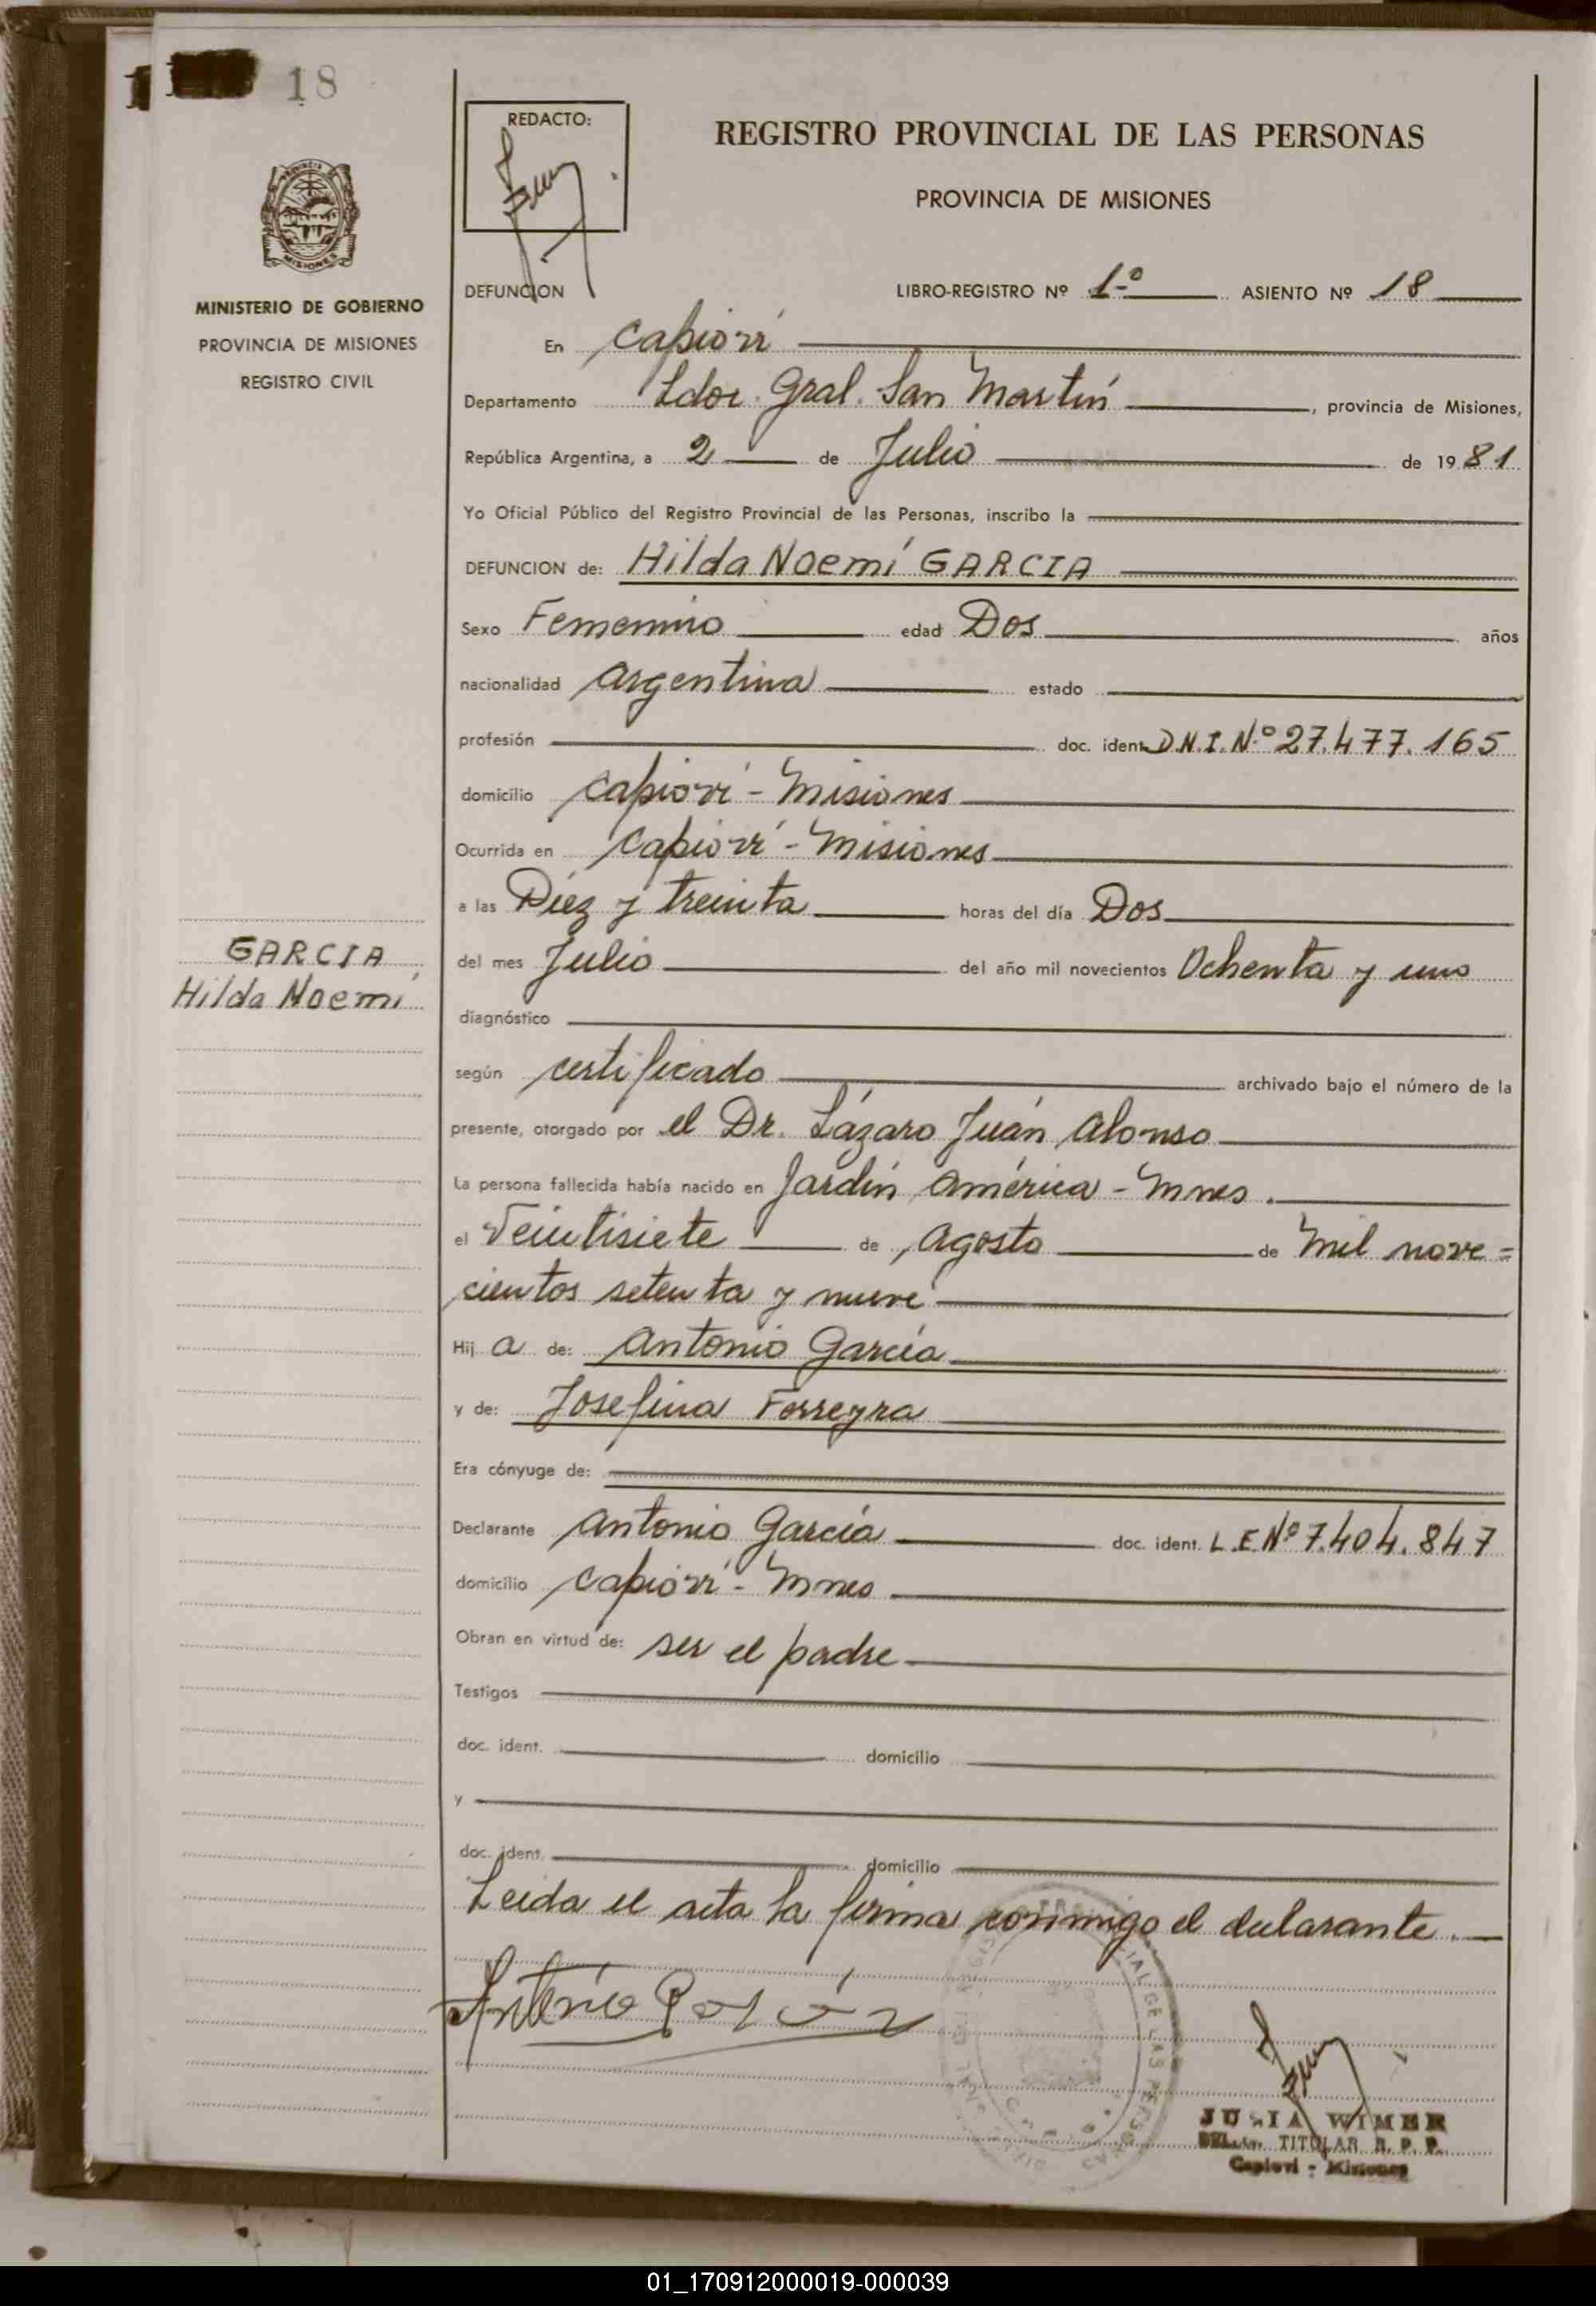 18
REDACTO:
REGISTRO PROVINCIAL DE LAS PERSONAS
PROVINCIA DE MISIONES
MISIONES
MINISTERIO DE GOBIERNO
PROVINCIA DE MISIONES
REGISTRO CIVIL
DEFUNCION LIBRO-REGISTRO Nº 1º ASIENTO Nº 18
En Capioví
Departamento Ldor. Gral. San Martín, provincia de Misiones,
República Argentina, a 2 de Julio de 1981
Yo Oficial Público del Registro Provincial de las Personas, inscribo la
DEFUNCION de: Hilda Noemí GARCIA
Sexo Femenino edad Dos años
nacionalidad Argentina estado
profesión doc. ident. D.N.I. N.º 27.477.165
domicilio Capioví - Misiones
Ocurrida en Capioví - Misiones
a las Diez y treinta horas del día Dos
GARCIA
Hilda Noemí
del mes Julio del año mil novecientos Ochenta y uno
diagnóstico
según certificado archivado bajo el número de la
presente, otorgado por el Dr. Lázaro Juán Alonso
La persona fallecida había nacido en Jardín América - Mnes.
el Veintisiete de Agosto de Mil nove=
cientos setenta y nueve
Hij a de: Antonio García
y de: Josefina Ferreyra
Era cónyuge de:
Declarante Antonio García doc. ident. L.E. Nº 7.404.847
domicilio Capioví - Mnes
Obran en virtud de: ser el padre
Testigos
doc. ident. domicilio
y
doc. ident. domicilio
Leida el acta la firma conmigo el declarante.
Antonio
WIMER
TITULAR R. P. P.
Capioví - Misiones
01_170912000019-000039